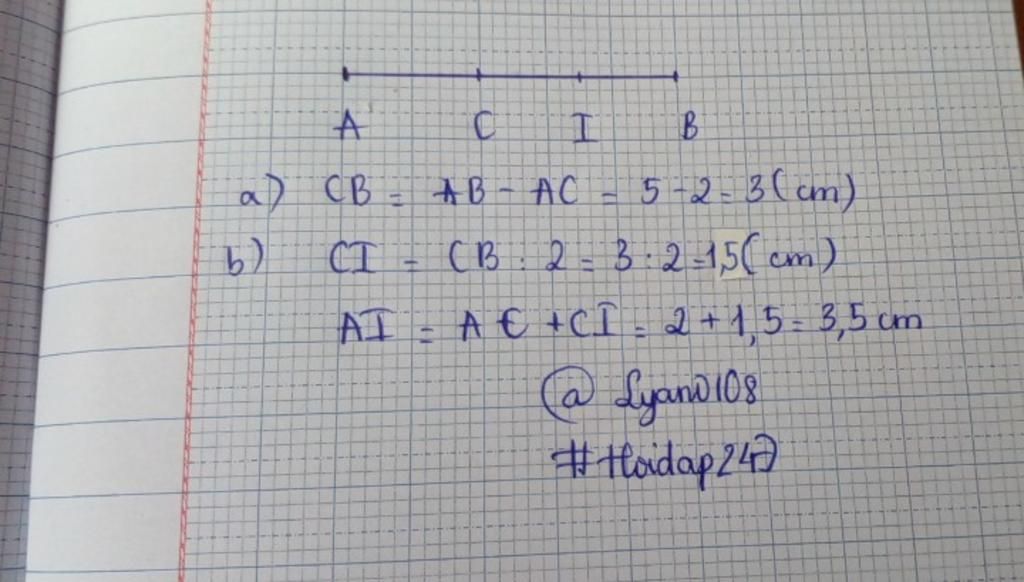 A C I B
a) CB = AB - AC = 5 - 2 = 3 (cm)
b) CI = CB : 2 = 3 : 2 = 1,5 (cm)
AI = AC + CI = 2 + 1,5 = 3,5 cm
@ Lyan0108
# Hoidap247